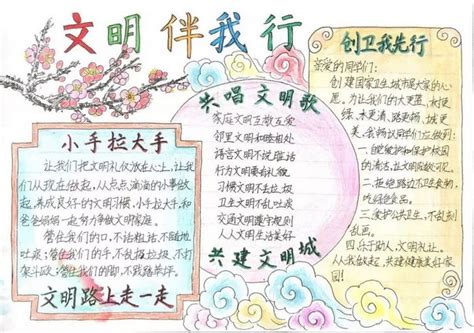 文明伴我行
小手拉大手
让我们把文明礼仪放在心上,让我
们从现在做起,从点点滴滴的小事做
起,养成良好的文明习惯,小手拉大手,和
爸爸妈妈一起努力争做文明家庭。
管住我们的口,不讲粗话,不随地
吐痰;管住我们的手,不乱扔垃圾,不打
架斗殴;管住我们的脚,不践踏草坪。
文明路上走一走
共唱文明歌
家庭文明互敬互爱
邻里文明和睦相处
语言文明不说脏话
行为文明
习惯文明不扔垃圾
卫生文明不乱吐痰
交通文明遵守规则
人人文明生活美好
共建文明城
创卫我先行
亲爱的同学们:
创建国家卫生城市是大家的心
愿。为让我们的天更蓝、树更
绿、水更清、路更畅、城更
美,我倡议同学们应做到:
一、能爱护和保护校园
的清洁,让文明花绽放。
二、拒绝路边不卫生的
食物,
三、爱护公共卫生,不乱刻
乱画。
四、乐于助人、文明礼让。
从我做起,共建健康美好家
园!